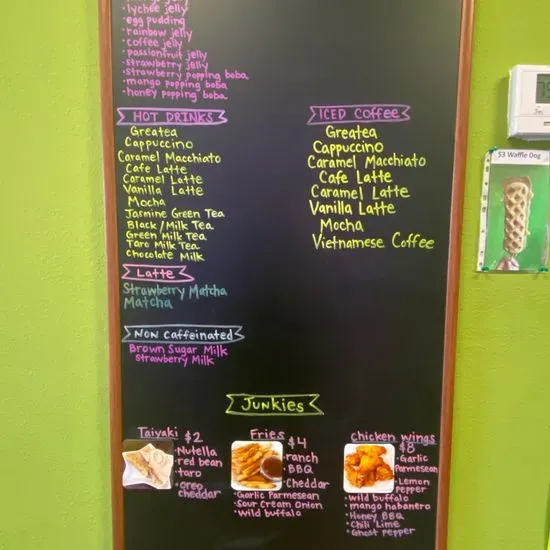 lychee jelly
egg pudding
rainbow jelly
coffee jelly
passionfruit jelly
strawberry jelly
strawberry popping boba
mango popping boba
honey popping boba
HOT DRINKS
Greatea
Cappuccino
Caramel Macchiato
Cafe Latte
Caramel Latte
Vanilla Latte
Mocha
Jasmine Green Tea
Black/Milk Tea
Green Milk Tea
Taro Milk Tea
Chocolate Milk
ICED COFFEE
Greatea
Cappuccino
Caramel Macchiato
Cafe Latte
Caramel Latte
Vanilla Latte
Mocha
Vietnamese Coffee
$3 Waffle Dog
Latte
Strawberry Matcha
Matcha
NON Caffeinated
Brown Sugar Milk
Strawberry Milk
JUNKIES
Taiyaki $2
Nutella
red bean
taro
oreo
cheddar
Fries $4
ranch
BBQ
Cheddar
Garlic Parmesean
Sour Cream Onion
Wild buffalo
chicken wings $8
Garlic
Parmesean
Lemon
Pepper
Wild buffalo
mango habanero
Honey BBQ
Chili Lime
Ghost pepper